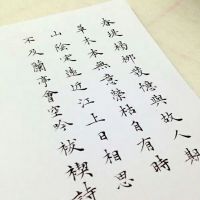 春堤楊柳發憶與故人期
草木本無意榮枯自有時
山陰定遠近江上日相思
不及蘭亭會空吟祓禊詩